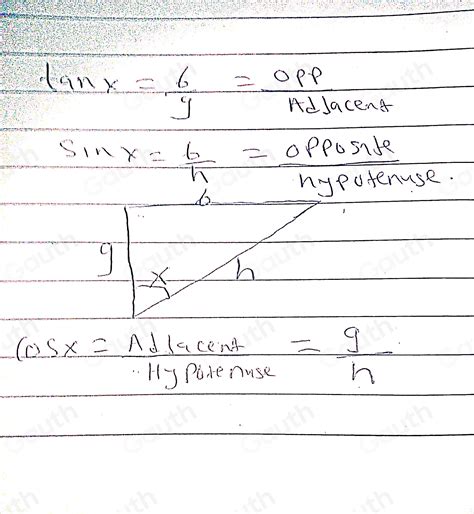 tan x = 6/g = opp/Adjacent
Sin x = 6/h = opposite/hypotenuse.
6
g
x
h
Cos x = Adjacent/Hypotenuse = g/h